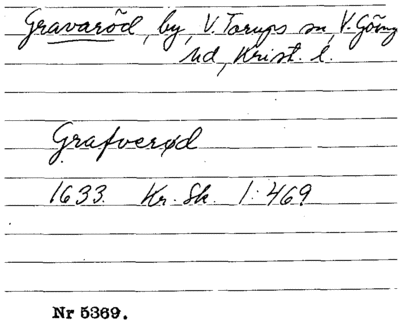 Gravaröd, by, V. Torups sn, V. Göing
hd, Krist. l.
Grafverød
1633. Kr. Sk. 1:469
Nr 5369.